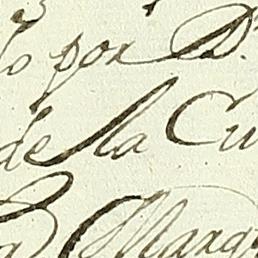 lo por D.
de la Cu
Marq